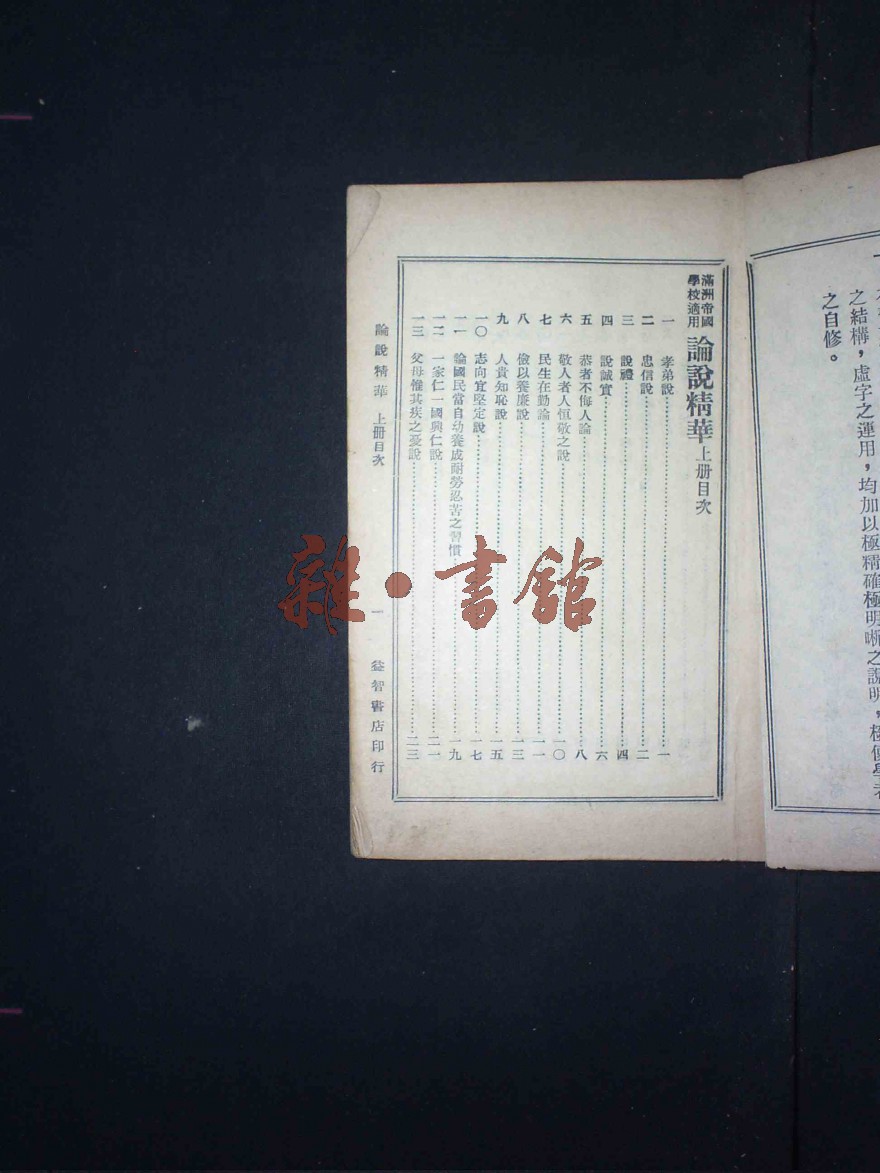 之結構，虛字之運用，均加以極精確極明晰之說明，極便學者
之自修。
滿洲帝國
學校適用
論說精華上册目次
一 孝弟說 一
二 忠信說 二
三 說禮 四
四 說誠實 六
五 恭者不侮人論 八
六 敬人者人恒敬之說 一〇
七 民生在勤論 一一
八 儉以養廉說 一三
九 人貴知恥說 一五
一〇 志向宜堅定說 一七
一一 論國民當自幼養成耐勞忍苦之習慣 一九
一二 一家仁一國興仁說 二一
一三 父母惟其疾之憂說 二三
論說精華 上册目次 一 益智書店印行
雜·書館